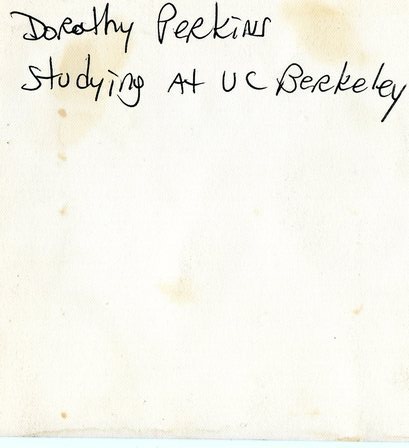 Dorothy Perkins
Studying At UC Berkeley